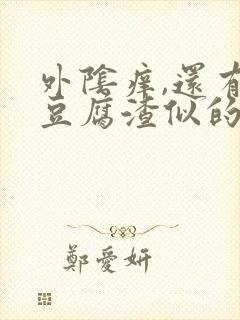 外陰痒,還有
豆腐渣似的
鄭愛妍